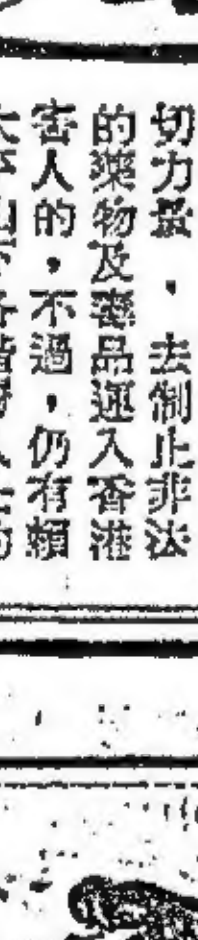 切力量，去制止非法
的藥物及毒品運入香港
害人的，不過，仍有賴